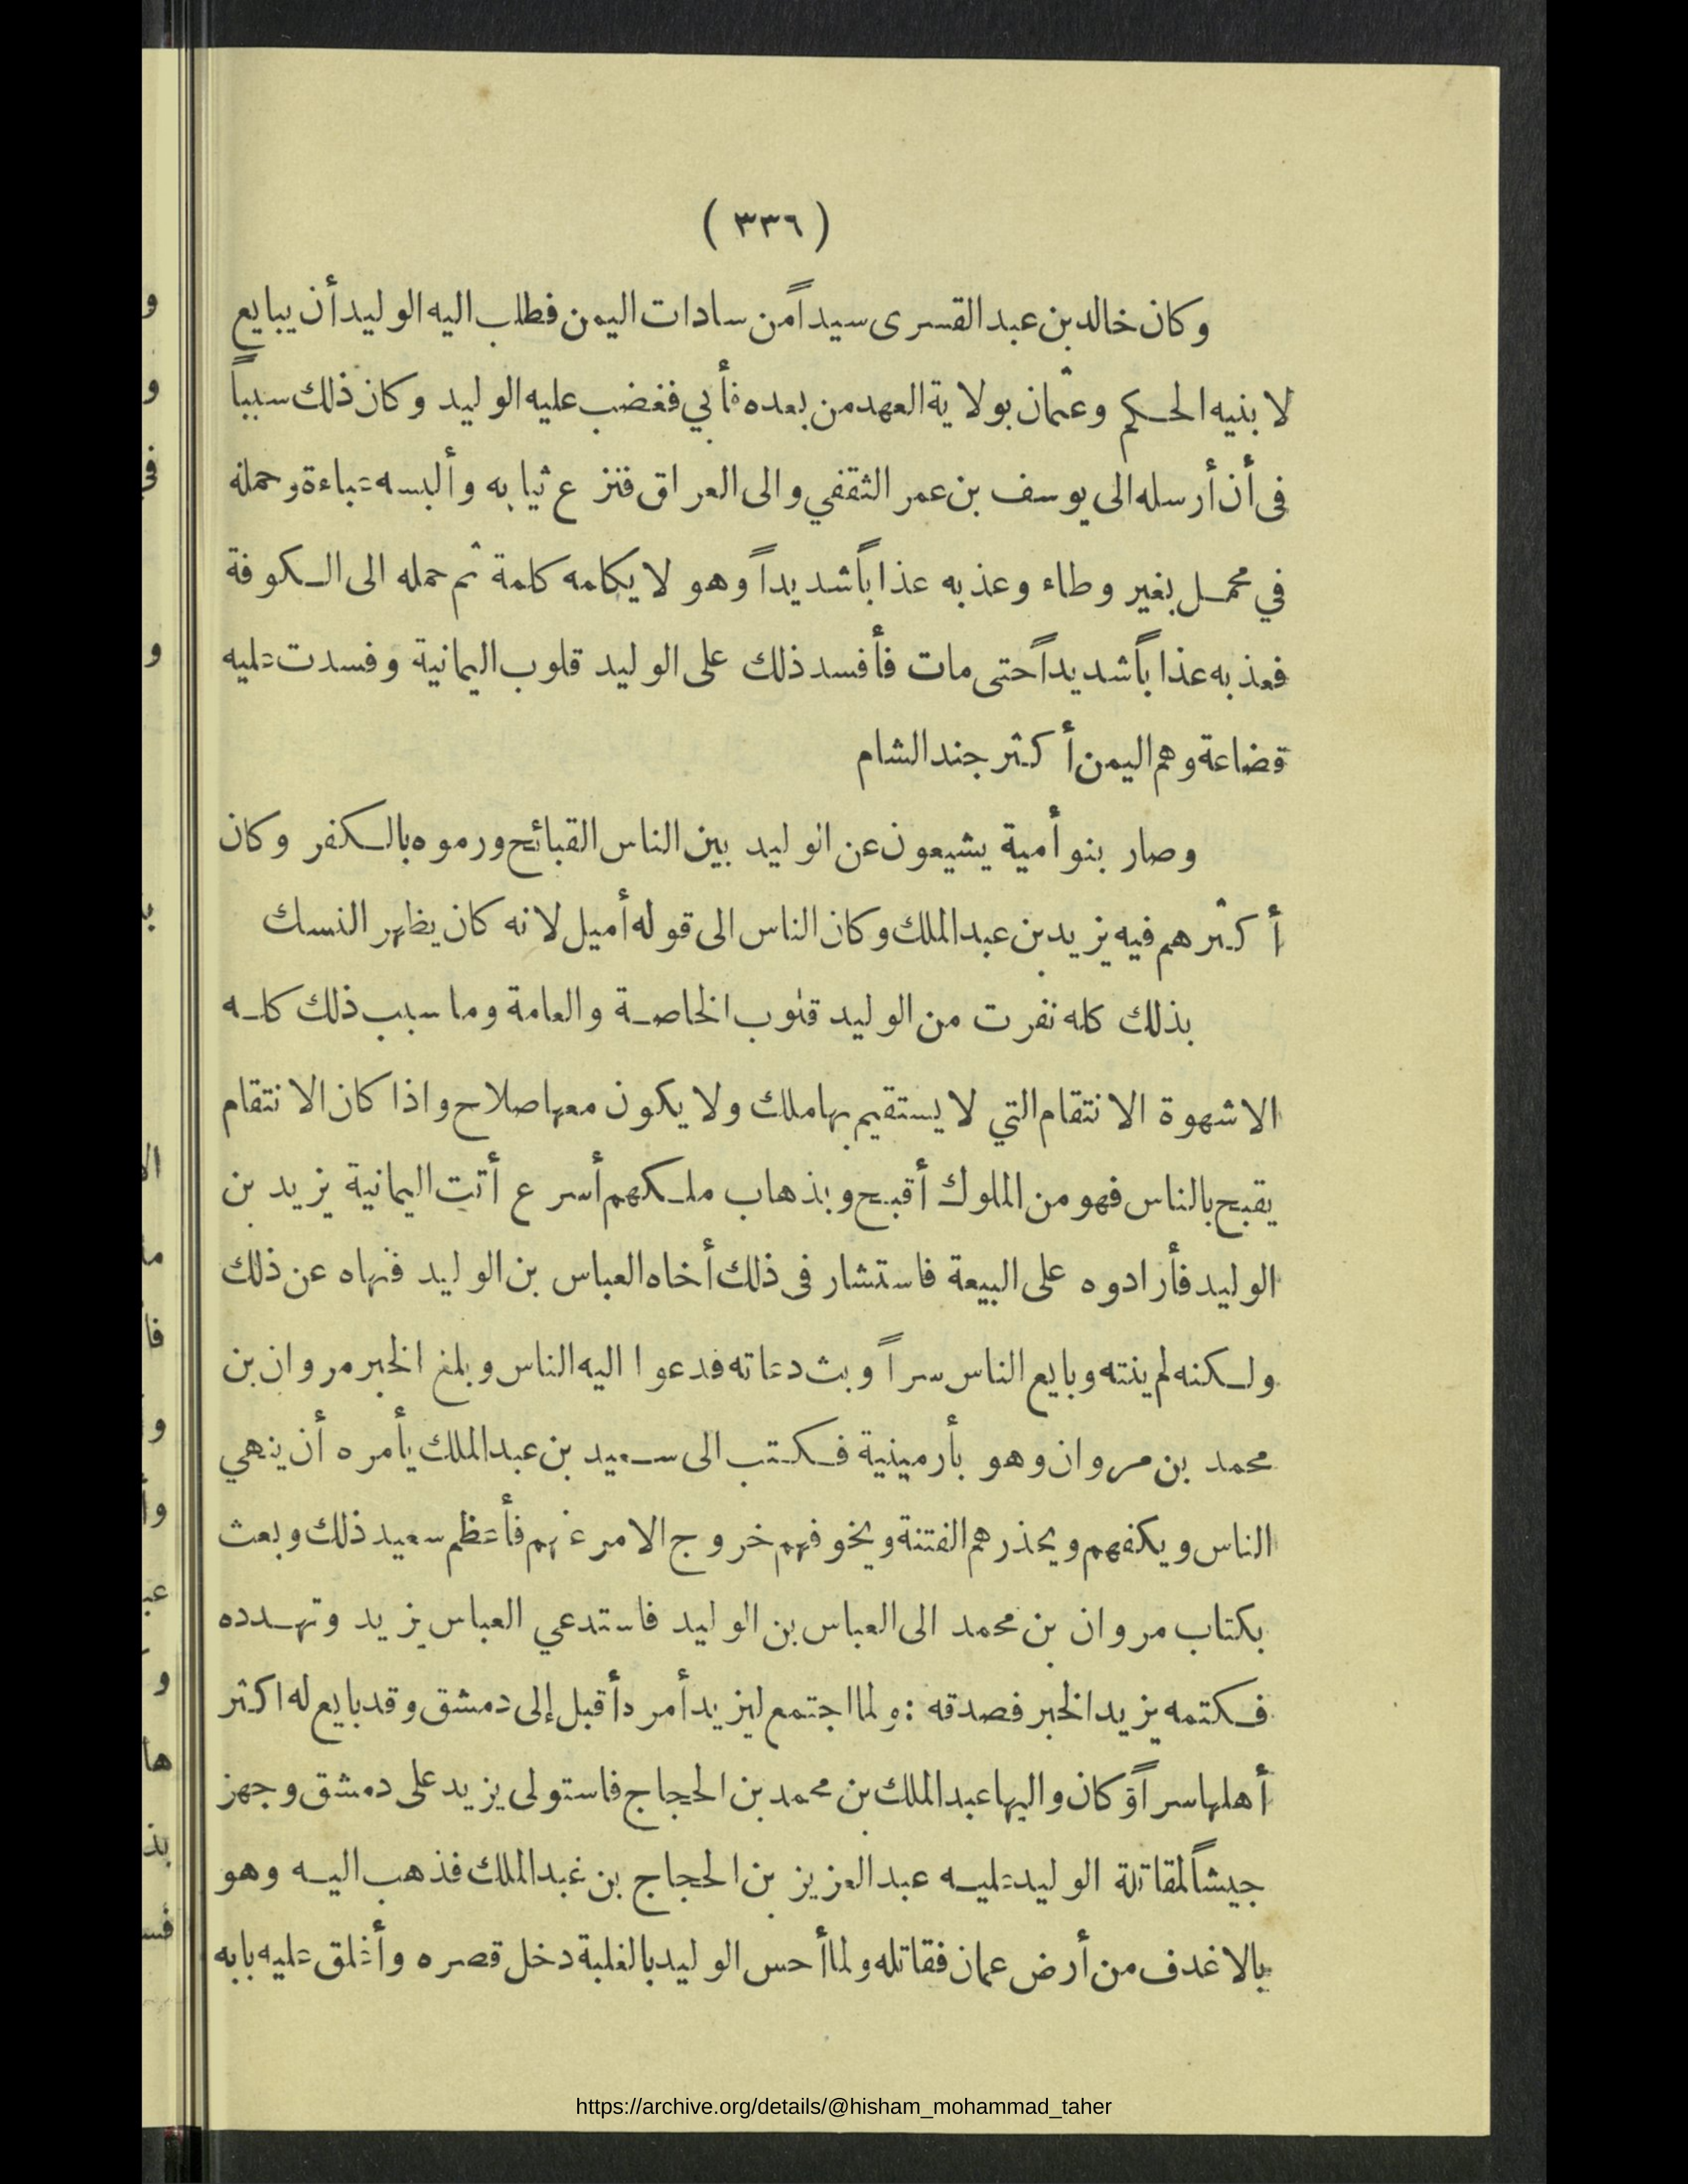 ( ٣٣٦ )
وكان خالد بن عبد القسرى سيداً من سادات اليمن فطلب اليه الوليد أن يبايع
لابنيه الحكم وعثمان بولاية العهد من بعده فأبي فغضب عليه الوليد وكان ذلك سبباً
فى أن أرسله الى يوسف بن عمر الثقفي والى العراق فنزع ثيابه وألبسه عباءة وحمله
في محمل بغير وطاء وعذبه عذاباً شديداً وهو لا يكلمه كلمة ثم حمله الى الكوفة
فعذبه عذاباً شديداً حتى مات فأفسد ذلك على الوليد قلوب اليمانية وفسدت عليه
قضاعة وهم اليمن أكثر جند الشام
وصار بنو أمية يشيعون عن الوليد بين الناس القبائح ورموه بالكفر وكان
أكثرهم فيه يزيد بن عبد الملك وكان الناس الى قوله أميل لانه كان يظهر النسك
بذلك كله نفرت من الوليد قلوب الخاصة والعامة وما سبب ذلك كله
الا شهوة الانتقام التي لا يستقيم بها ملك ولا يكون معها صلاح واذا كان الانتقام
يقبح بالناس فهو من الملوك أقبح وبذهاب ملكهم أسرع أتت اليمانية يزيد بن
الوليد فأرادوه على البيعة فاستشار فى ذلك أخاه العباس بن الوليد فنهاه عن ذلك
ولكنه لم ينته وبايع الناس سراً وبث دعاته فدعوا اليه الناس وبلغ الخبر مروان بن
محمد بن مروان وهو بأرمينية فكتب الى سعيد بن عبد الملك يأمره أن ينهي
الناس ويكفهم ويحذرهم الفتنة ويخوفهم خروج الامر عنهم فأعظم سعيد ذلك وبعث
بكتاب مروان بن محمد الى العباس بن الوليد فاستدعي العباس يزيد وتهدده
فكتمه يزيد الخبر فصدقه : ولما اجتمع ليزيد أمره أقبل إلى دمشق وقد بايع له اكثر
أهلها سراً وكان واليها عبد الملك بن محمد بن الحجاج فاستولى يزيد على دمشق وجهز
جيشاً لمقاتلة الوليد عليه عبد العزيز بن الحجاج بن عبد الملك فذهب اليه وهو
بالاغدف من أرض عمان فقاتله ولما أحس الوليد بالغلبة دخل قصره وأغلق عليه بابه
https://archive.org/details/@hisham_mohammad_taher